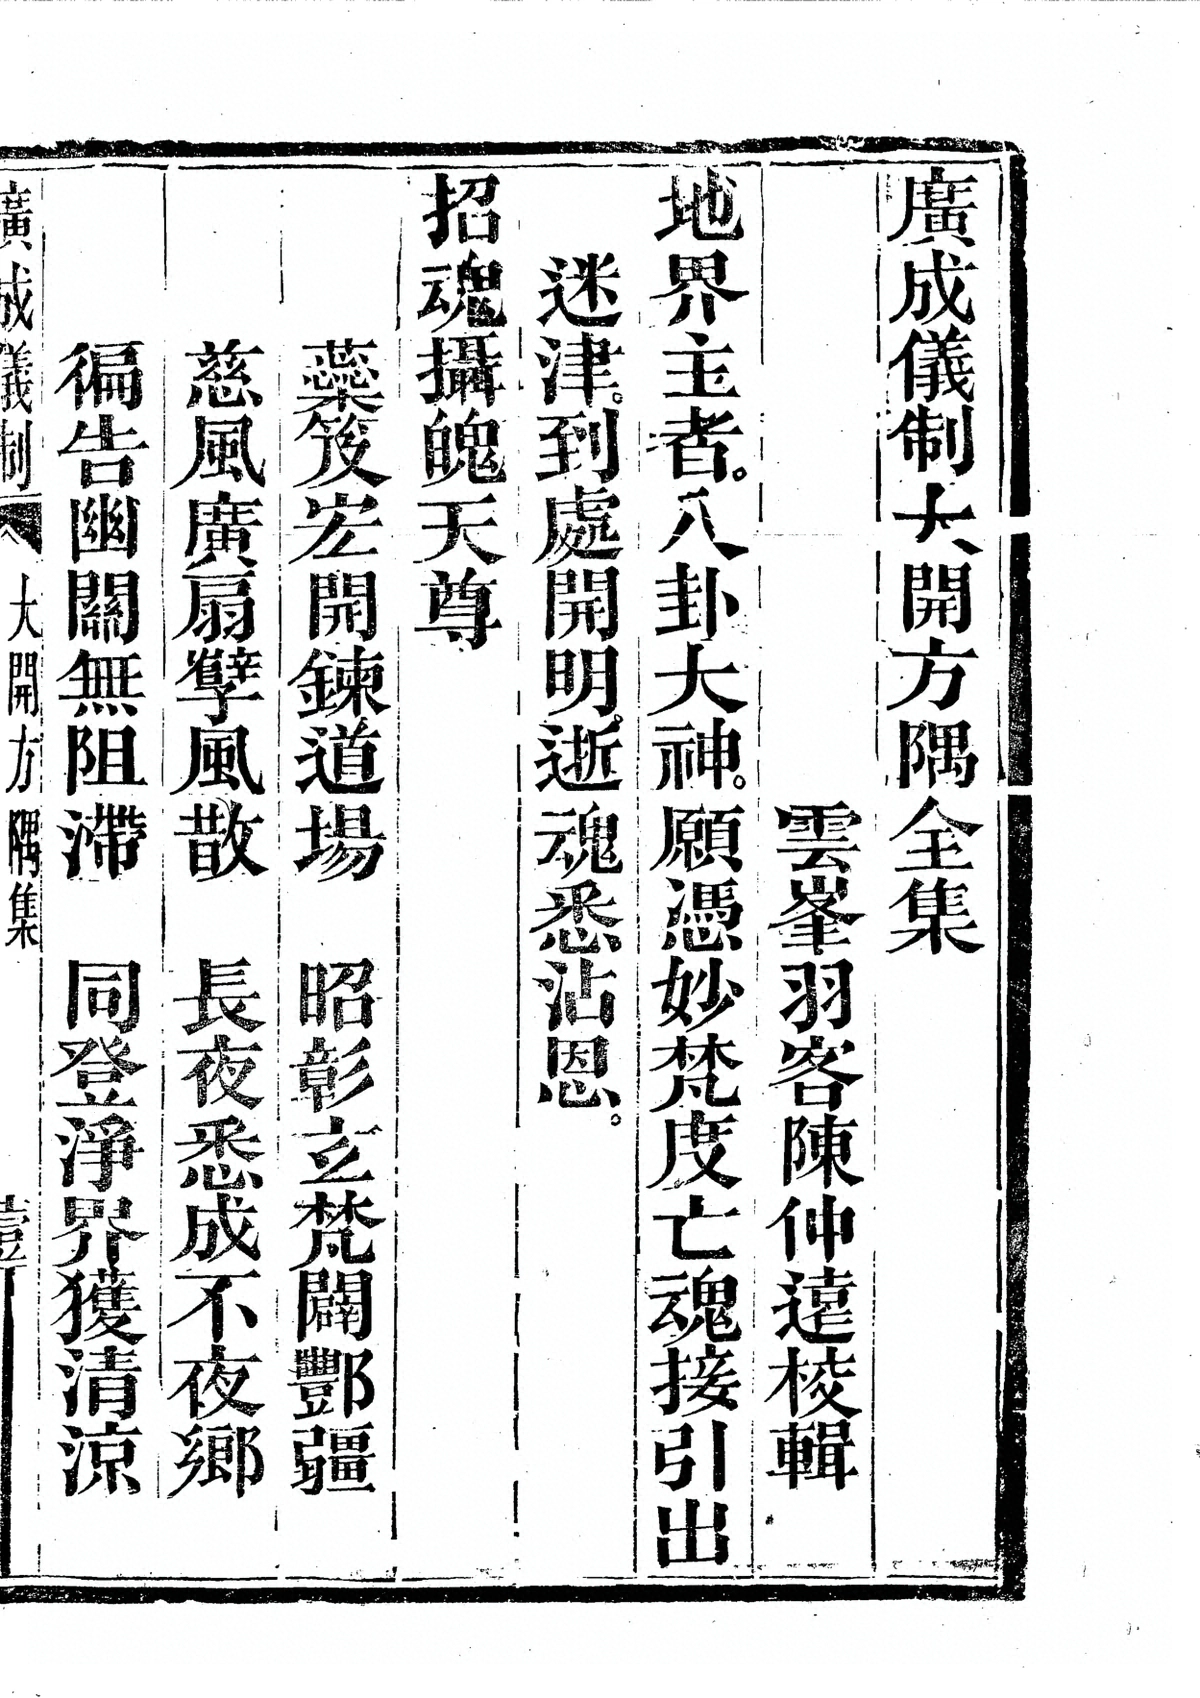 廣成儀制大開方隅全集
雲峯羽客陳仲遠校輯
地界主者。八卦大神。願憑妙梵度亡魂接引出
迷津。到處開明。逝魂悉沾恩。
招魂攝魄天尊
蘂笈宏開鍊道場　昭彰玄梵闢酆疆
慈風廣扇孽風散　長夜悉成不夜鄉
徧告幽關無阻滯　同登淨界獲清涼
廣成儀制　大開方隅集　壹